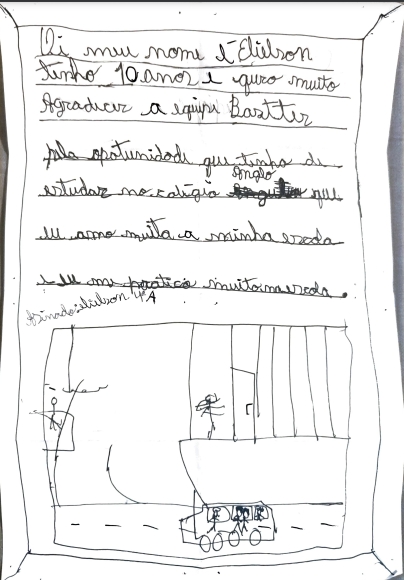 Oi meu nome é Elielson
tenho 10 anos e quro muito
Agradicer a equipe Bastter
pela opotunidade que tenho de
estudar no colégio Anglo que
eu amo muita a minha escola
e eu me pratico muito na escola.
Asinado: elielson 4ºA